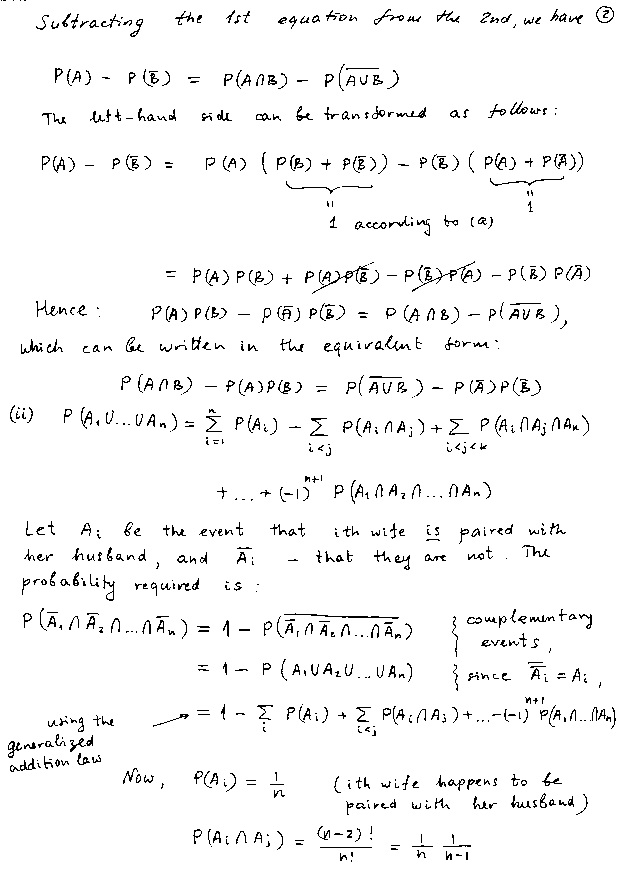 Subtracting the 1st equation from the 2nd, we have ②
P(A) - P(B̅) = P(A∩B) - P(A̅∪̅B̅)
The left-hand side can be transformed as follows:
P(A) - P(B̅) = P(A) (P(B) + P(B̅)) - P(B̅) (P(A) + P(A̅))
" "
1 according to (a) 1
= P(A)P(B) + P(A)P(B̅) - P(B̅)P(A) - P(B̅)P(A̅)
Hence: P(A)P(B) - P(A̅)P(B̅) = P(A∩B) - P(A̅∪̅B̅),
which can be written in the equivalent form:
P(A∩B) - P(A)P(B) = P(A̅∪̅B̅) - P(A̅)P(B̅)
(ii) P(A₁∪...∪Aₙ) = Σ P(Aᵢ) - Σ P(Aᵢ∩Aⱼ) + Σ P(Aᵢ∩Aⱼ∩Aₖ)
n
i=1 i<j i<j<k
+ ... + (-1)ⁿ⁺¹ P(A₁∩A₂∩...∩Aₙ)
Let Aᵢ be the event that ith wife is paired with
her husband, and A̅ᵢ - that they are not. The
probability required is:
P(A̅₁∩A̅₂∩...∩A̅ₙ) = 1 - P(A̅₁∩A̅₂∩...∩A̅ₙ)‾ } complementary
events,
= 1 - P(A₁∪A₂∪...∪Aₙ) } since A̿ᵢ = Aᵢ,
using the → = 1 - Σ P(Aᵢ) + Σ P(Aᵢ∩Aⱼ) + ... -(-1)ⁿ⁺¹ P(A₁∩...∩Aₙ)
i i<j
generalized
addition law
Now, P(Aᵢ) = 1/n (ith wife happens to be
paired with her husband)
P(Aᵢ∩Aⱼ) = (n-2)!/n! = 1/n 1/n-1